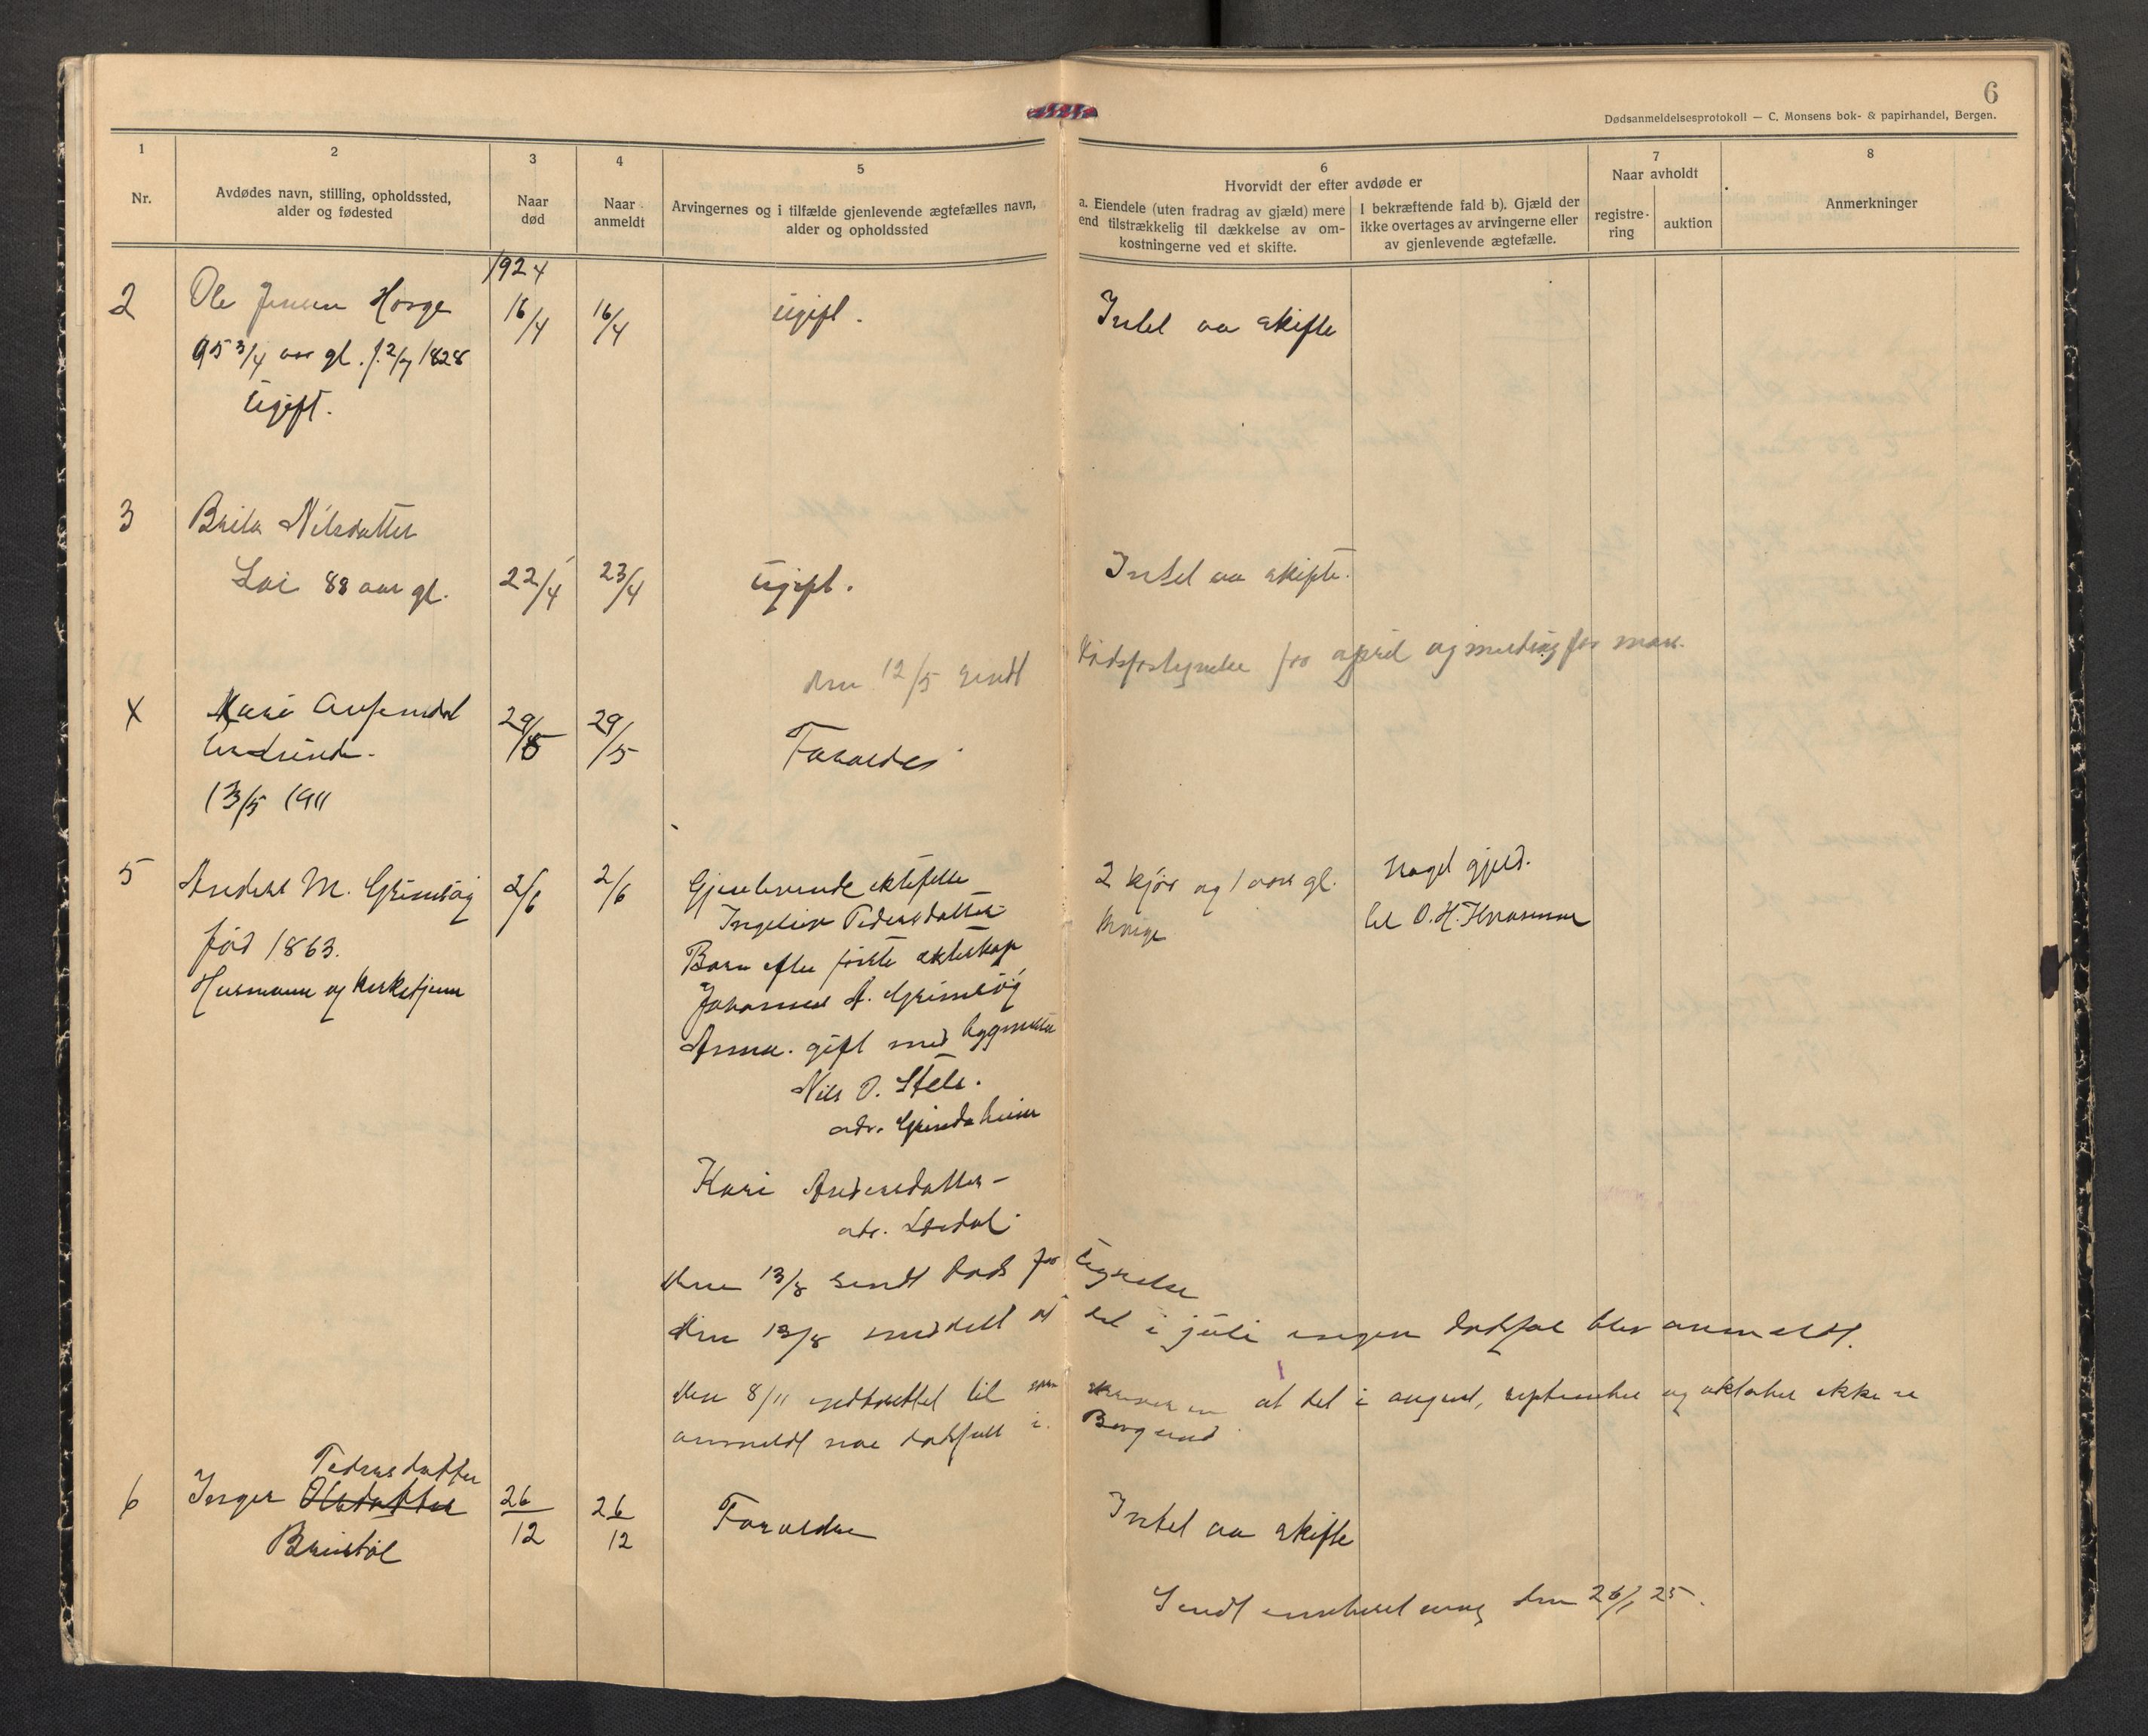 6
Dødsanmeldelsesprotokoll — C. Monsens bok- & papirhandel, Bergen.
1
Nr.
2
Avdødes navn, stilling, opholdssted,
alder og fødested
3
Naar
død
4
Naar
anmeldt
5
Arvingernes og i tilfælde gjenlevende ægtefælles navn,
alder og opholdssted
6
Hvorvidt der efter avdøde er
a. Eiendele (uten fradrag av gjæld) mere
end tilstrækkelig til dækkelse av om-
kostningerne ved et skifte.
I bekræftende fald b). Gjæld der
ikke overtages av arvingerne eller
av gjenlevende ægtefælle.
7
Naar avholdt
registre-
ring
auktion
8
Anmerkninger
1924
2
Ole Jensen Horge
95 3/4 aar gl. f. 2/7 1828
Ugift.
16/4
16/4
Ugift.
Intet aa skifte
3
Brita Nilsdatter
Loi 88 aar gl.
22/4
23/4
Ugift.
Intet aa skifte.
den 12/5 sendt
for april og melding for mars.
X
Kari
13/5 1911
29/5
29/5
Foraeldre
5
Anders M. Grimsøig
fød 1863.
Husmann og kirketjener
2/6
2/6
Gjenlevende ektefelle
Ingeleiv Pedersdatter
Barn efter første ekteskap
Johannes A. Grimsøig
Anna. gift med bygmester
Nils O. Stele.
adr. Grindaheim
Kari Andersdatter –
adr. Lærdal.
2 kjør og 1 aars gl.
kvige
Noget gjeld.
til O. H. Kvamme
den 13/8 sendt døds fortegnelse
den 13/8 meddelt at det i juli ingen dødsfal blev anmeldt.
den 8/11 indberettet til at det i august, september og oktober ikke er
anmeldt noe dødsfall i Borgund
6
Pedersdatter
Inger Olsdatter
Brustøl
26/12
26/12
Foraeldre
Intet aa skifte
Sendt innberetning den 26/1 25.